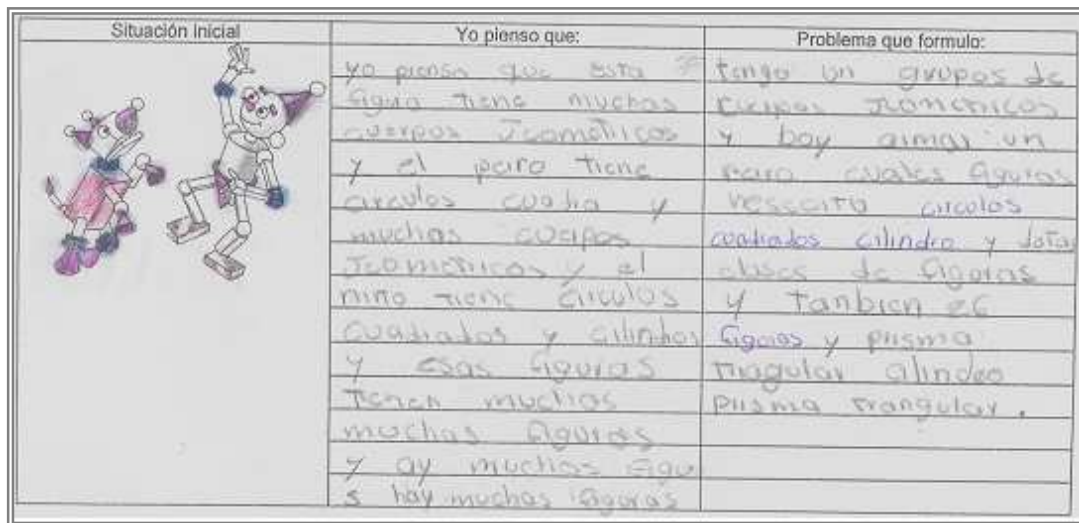 Situación Inicial
Yo pienso que:
yo pienso que esta
figura tiene muchos
cuerpos Jeometricos
y el perro tiene
circulos cuadra y
muchos cuerpos
Jeometricos y el
niño tiene circulos
cuadrados y cilindros
y esas figuras
tenen muchas
muchas figuras
y ay muchas figu
s hay muchas figuras
Problema que formulo:
tengo un grupos de
cuerpos Jeometricos
y boy armar un
perro cuales figuras
nescsito circulos
cuadrados cilindro y
clases de figuras
y tanbien es
figuras y prisma
triagular cilindeo
prisma trangular.